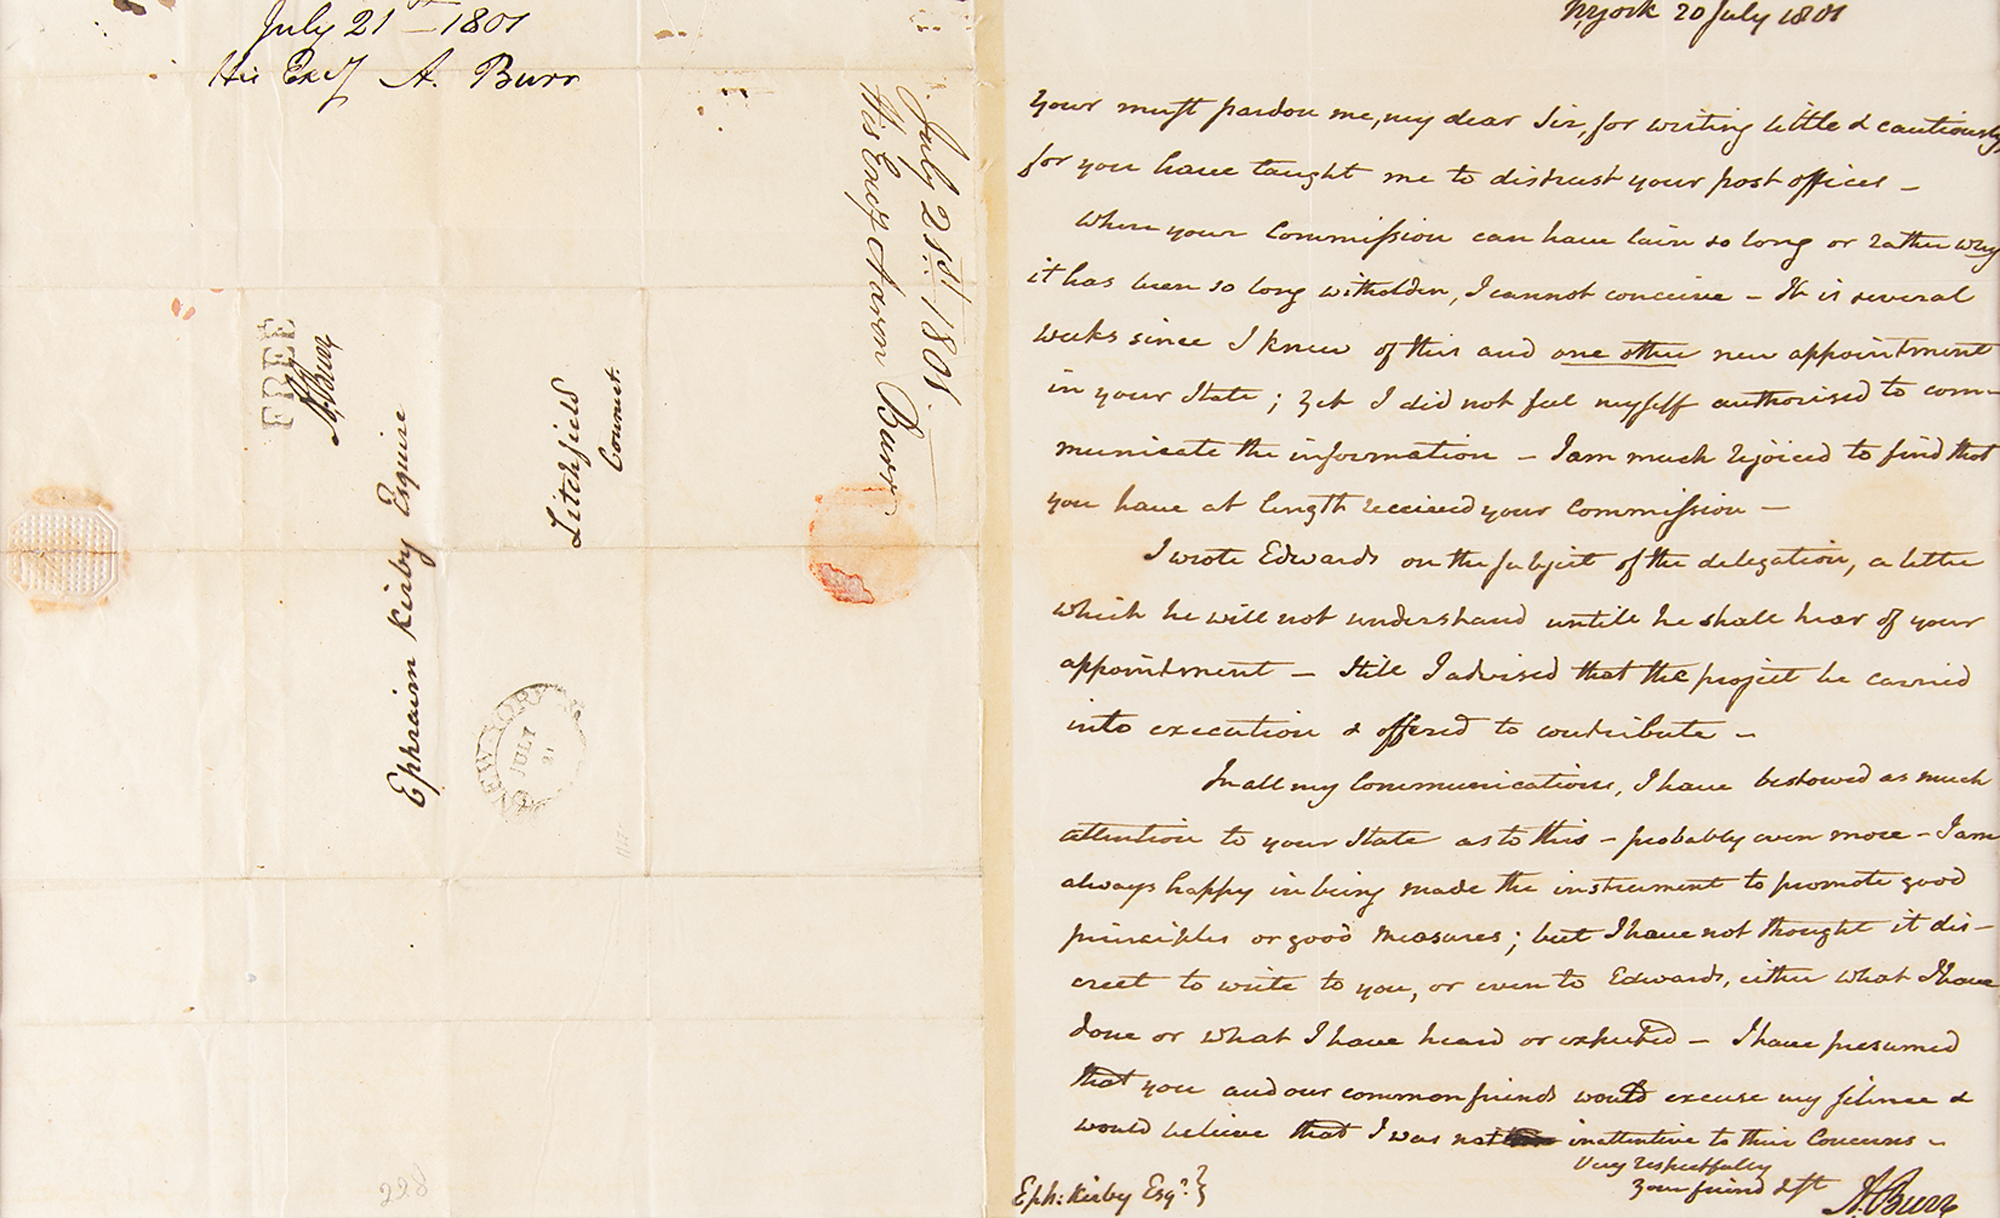 July 21st — 1801
His Excy A. Burr
July 21st. 1801.
His Excy Aaron Burr
FREE
A. Burr
Ephraim Kirby Esquire
Litchfield
Connect.
NEW YORK
JULY
21
228
NYork 20 July 1801
Your must pardon me, my dear Sir, for writing little & cautiously,
for you have taught me to distrust your post offices —
Where your Commission can have lain so long or rather why
it has been so long witholden, I cannot conceive — It is several
weeks since I knew of this and one other new appointment
in your State; yet I did not feel myself authorised to com-
municate the information — I am much rejoiced to find that
you have at length received your Commission —
I wrote Edwards on the subject of the delegation, a letter
which he will not understand untill he shall hear of your
appointment — Still I advised that the project be carried
into execution & offered to contribute —
In all my Communications, I have bestowed as much
attention to your State as to this — probably even more — I am
always happy in being made the instrument to promote good
principles or good measures; but I have not thought it dis-
creet to write to you, or even to Edwards, either what I have
done or what I have heard or expected — I have presumed
that you and our common friends would excuse my silence &
would believe that I was not inattentive to their Concerns —
Very respectfully
Your friend & st
A. Burr
Eph: Kirby Esqr. }